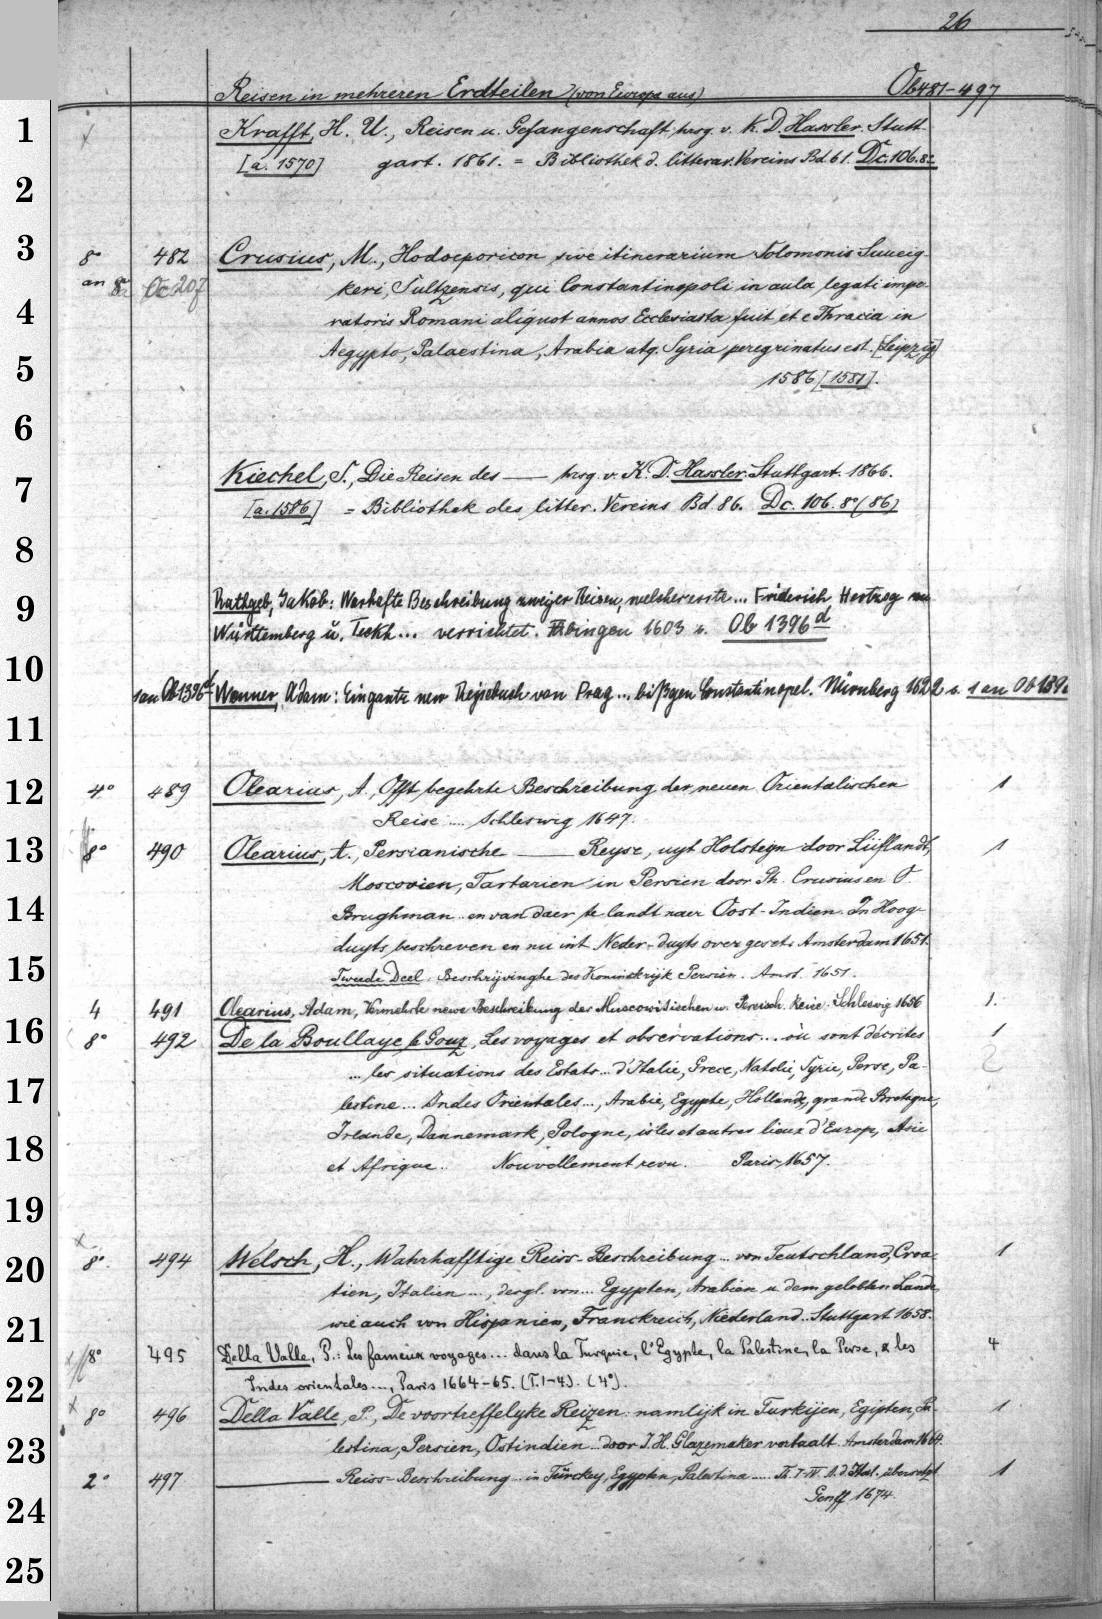 26
Reisen in mehreren Erdteilen (von Europa aus) Ob 481-497
1 Krafft, H. U., Reisen u. Gefangenschaft, hrsg. v. K. D. Hassler. Stutt-
[a. 1570] gart. 1861. = Bibliothek d. litterar. Vereins Bd. 61. Dc. 106. 8°
2
3 8° 482 Crusius, M., Hodoeporicon sive itinerarium Solomonis Sueig-
an 8° Oc 207 keri, Sultzensis, qui Constantinopoli in aula legati impe-
4 ratoris Romani aliquot annos Ecclesiasta fuit et e Thracia in
5 Aegypto, Palaestina, Arabia atq. Syria peregrinatus est. [Leipzig]
1586 [1581].
6
7 Kiechel, S., Die Reisen des —— hrsg. v. K. D. Hassler. Stuttgart. 1866.
[a. 1586] = Bibliothek des litter. Vereins Bd. 86. Dc. 106. 8° (86)
8
9 Rathgeb, Jakob: Warhafte Beschreibung zweyer Reisen, welcher erste... Friderich Hertzog zu
Württemberg u. Teckh... verrichtet. Tübingen 1603 s. Ob 1396 d
10 1 an Ob 1396 d Wenner, Adam: Ein gantz new Reysebuch von Prag... bißgen Constantinopel. Nürnberg 1622 s. 1 an Ob 139
11
12 4° 489 Olearius, A., Offt begehrte Beschreibung der neuen Orientalischen 1
Reise .... Schleswig 1647.
13 8° 490 Olearius, A., Persianische —— Reyse, uyt Holsteyn door Lüiflandt, 1
Moscovien, Tartarien in Persien door Ph. Crusius en O.
14 Brughman.. en van daer te landt naer Oost-Indien. In Hoog-
duyts beschreven en nu int Neder-duyts over geset. Amsterdam 1651.
15 Tweede Deel. Beschrijvinghe des Koninckrijk Persien. Amst. 1651.
4 491 Olearius, Adam, Vermehrte newe Beschreibung der Muscowitischen u. Persisch. Reise. Schleswig 1656 1.
16 8° 492 De la Boullaye le Gouz, Les voyages et observations... où sont décrites 1
... les situations des Estats... d'Italie, Grece, Natolie, Syrie, Perse, Pa- 2
17 lestine... Indes Orientales..., Arabie, Egypte, Hollande, grande Bretagne,
Irlande, Dannemark, Pologne, isles et autres lieux d'Europe, Asie
18 et Afrique.. Nouvellement revu. Paris, 1657.
19
20 8° 494 Welsch, H., Wahrhafftige Reiss-Beschreibung... von Teutschland, Croa- 1
tien, Italien ..., desgl. von... Egypten, Arabien u. dem gelobten Lande,
21 wie auch von Hispanien, Franckreich, Niederland.. Stuttgart 1658.
8° 495 Della Valle, P.: Les fameux voyages... dans la Turquie, l'Egypte, la Palestine, la Perse, & les 4
22 Indes orientales..., Paris 1664-65. (T. 1-4). (4°).
8° 496 Della Valle, P., De voortreffelyke Reizen: namlijk in Turkijen, Egipten, Pa- 1
23 lestina, Persien, Ostindien... door J. H. Glazemaker vertaalt. Amsterdam 1664.
2° 497 —— Reiss-Beschreibung... in Türckey, Egypten, Palestina .... Th. I-IV. A. d. Ital. übersetzt 1
24 Genff 1674.
25